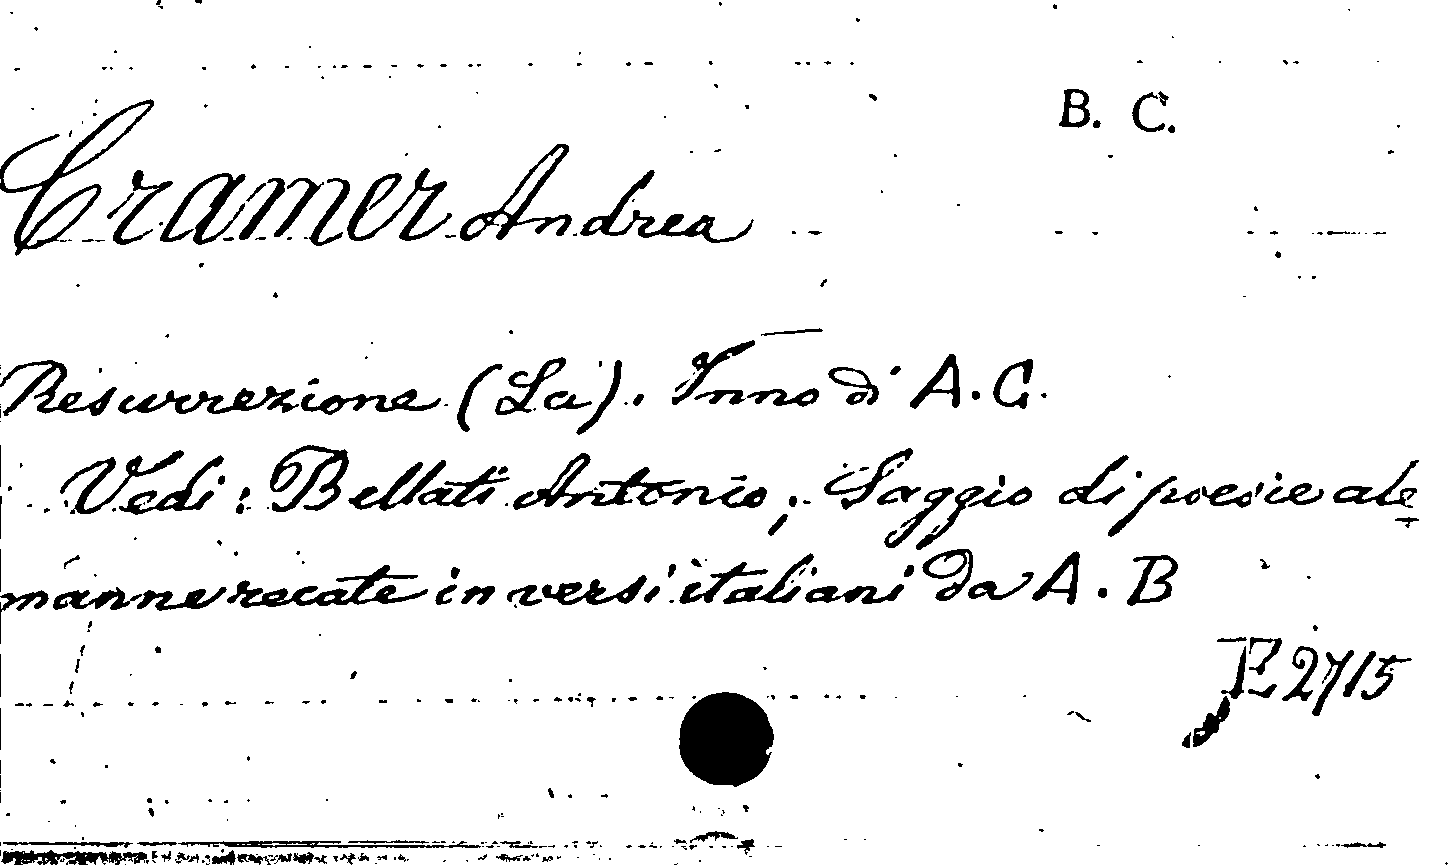 B. C.
Cramer Andrea
Resurrezione (La). Inno di A. C.
Vedi: Bellati Antonio; Saggio di poesie ale
manne recate in versi italiani da A. B
E 2715